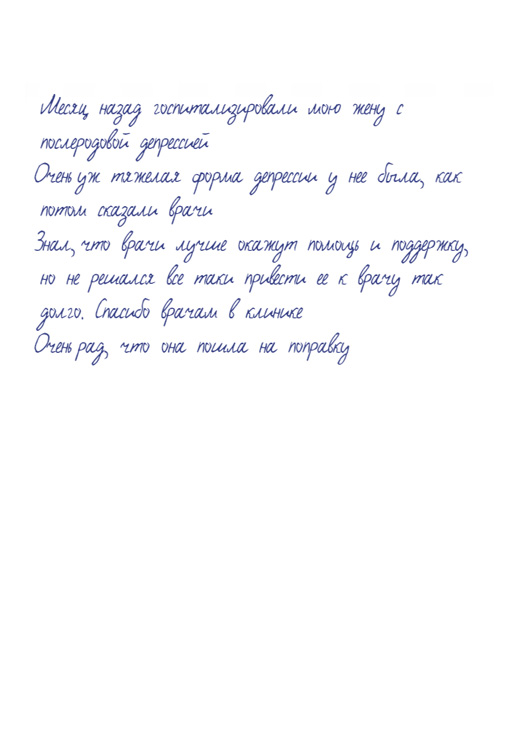 Месяц назад госпитализировали мою жену с
послеродовой депрессией
Очень уж тяжелая форма депрессии у нее была, как
потом сказали врачи
Знал, что врачи лучше окажут помощь и поддержку,
но не решался все таки привести ее к врачу так
долго. Спасибо врачам в клинике
Очень рад, что она пошла на поправку